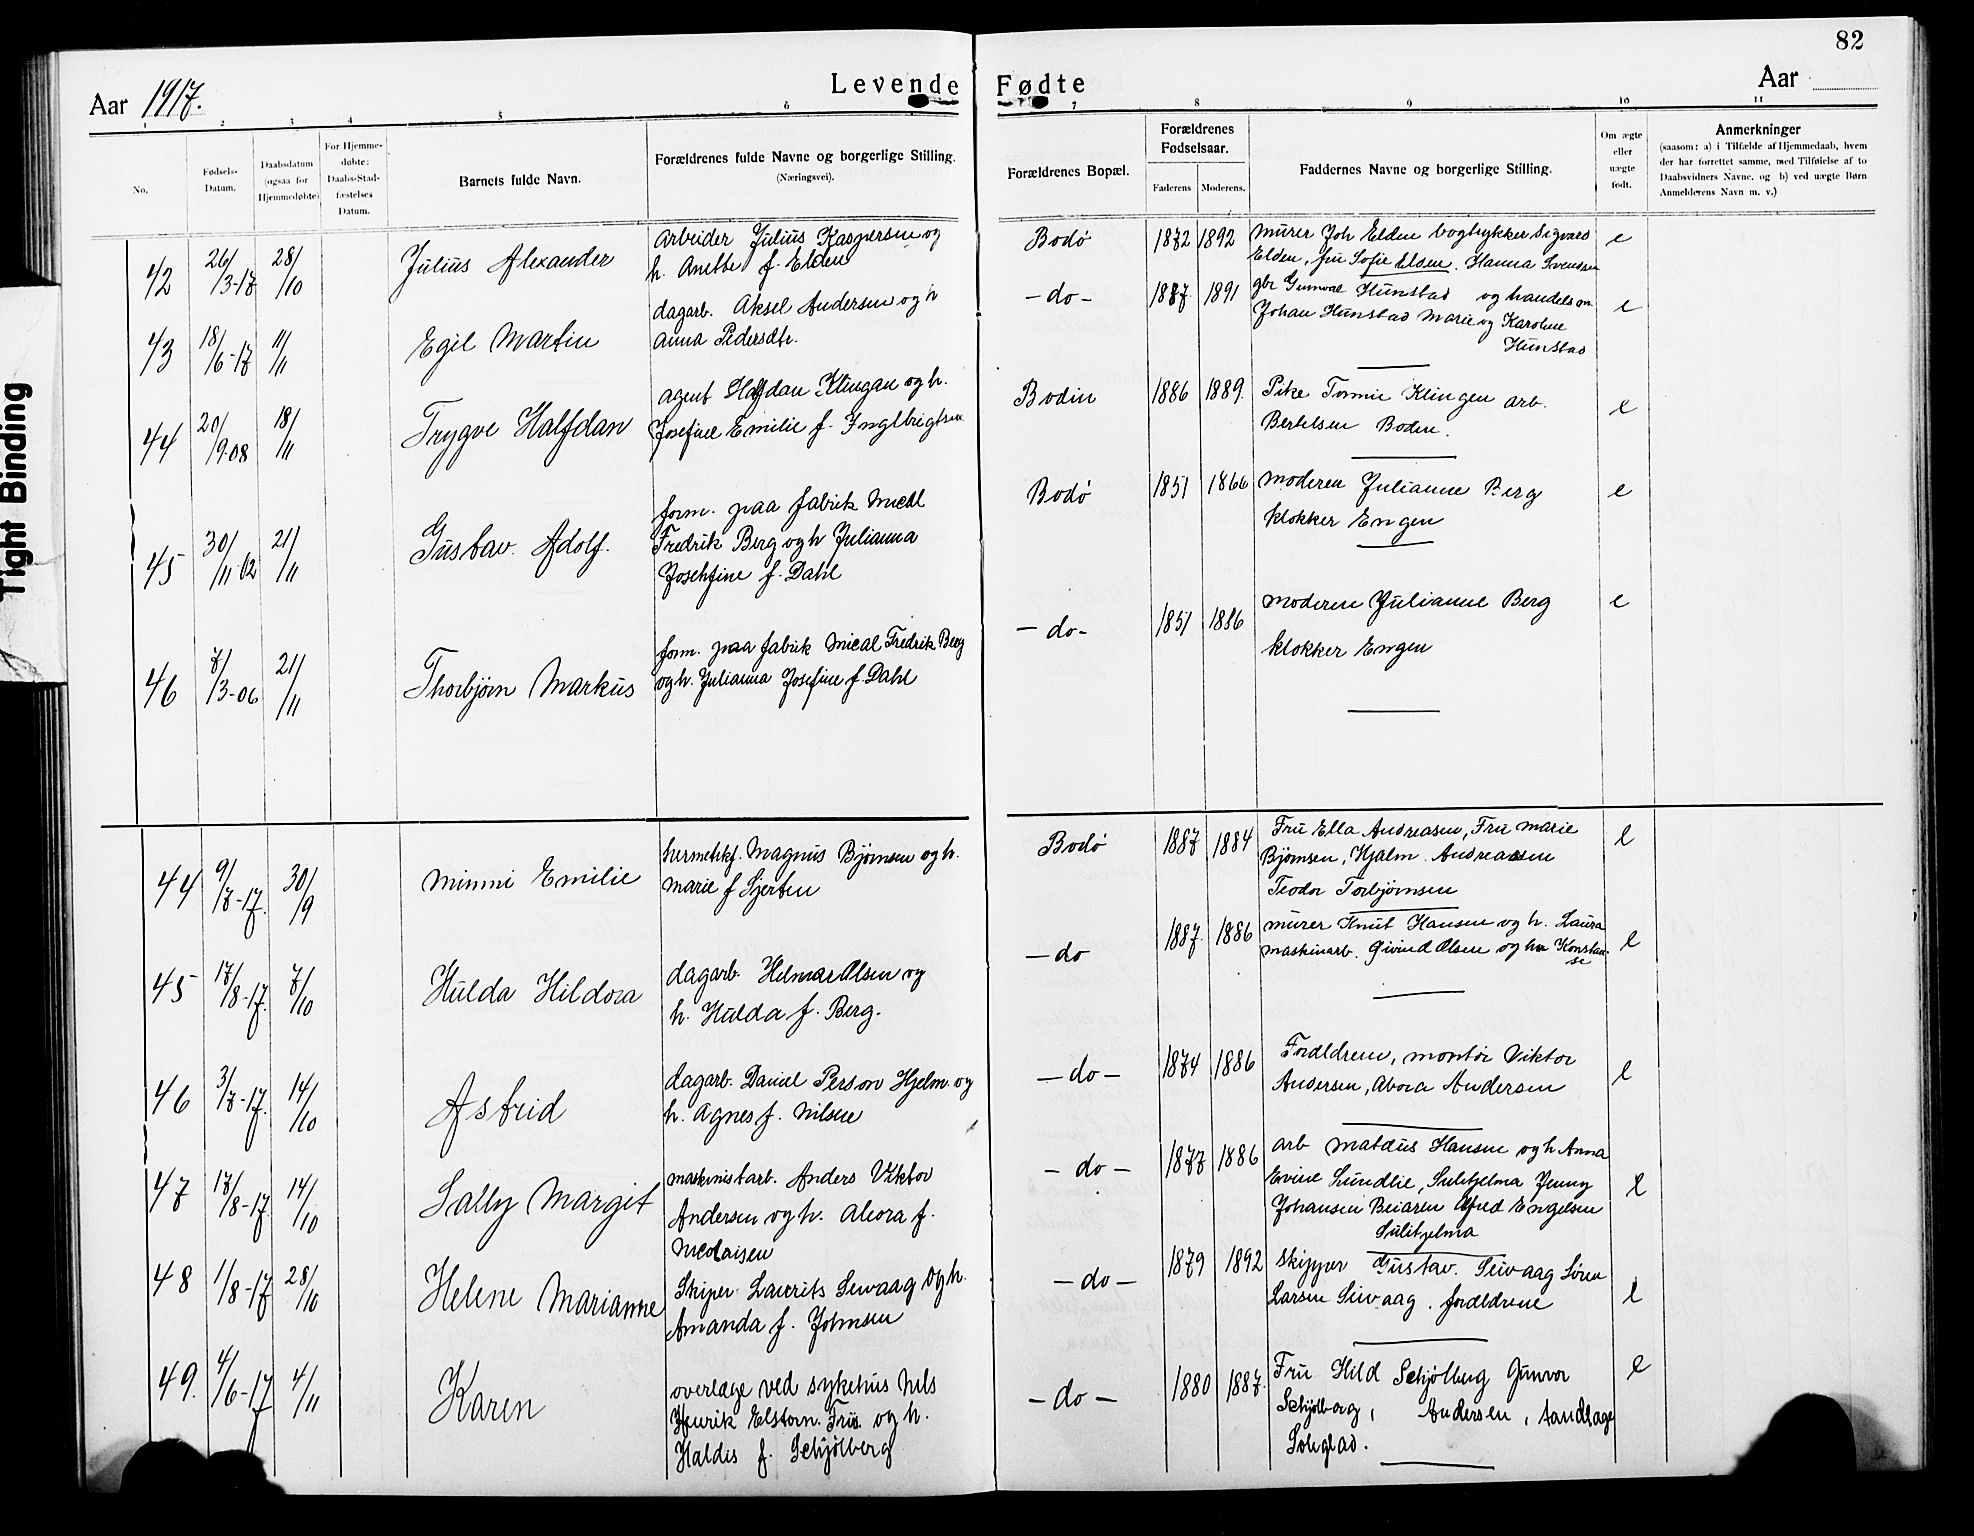 82
Levende Fødte
Aar 1917.
Aar
1 2 3 4 5 6 7 8 9 10 11
No.
Fødsels-
Datum.
Daabsdatum
(ogsaa for
Hjemmedøbte)
For Hjemme-
døbte:
Daabs-Stad-
fæstelses
Datum.
Barnets fulde Navn.
Forældrenes fulde Navne og borgerlige Stilling.
(Næringsvei).
Forældrenes Bopæl.
Forældrenes
Fødselsaar.
Faderens Moderens.
Faddernes Navne og borgerlige Stilling.
Om ægte
eller
uægte
født.
Anmerkninger
(saasom: a) i Tilfælde af Hjemmedaab, hvem
der har forrettet samme, med Tilføielse af to
Daabsvidners Navne, og b) ved uægte Børn
Anmelderens Navn m. v.)
42 26/3-17 28/10 Julius Alexander
Arbeider Julius Kaspersen og
h. Anette f. Elden
Bodø 1872 1892
murer Joh Elden bogtrykker Sigvard
Elden, fru Sofie Elden. Hanna Svendsen
e
43 18/6-17 11/11 Egil Martin
dagarb. Aksel Andersen og h
Anna Pedersdtr.
- do - 1887 1891
gbr Gunval Hunstad og handelsm.
Johan Hunstad Marie og Karoline
Hunstad
e
44 20/9-08 18/11 Trygve Halfdan
agent Halfdan Klingan og h.
Josefine Emilie f. Inglbrigtsen
Bodin 1886 1889.
Pike Tomine Klingen arb.
Bertelsen Bodin.
e
45 30/11-02 21/11 Gustav Adolf.
form. paa fabrik Micel
Fredrik Berg og h Julianna
Josehfine f. Dahl
Bodø 1851 1866
Moderen Julianne Berg
klokker Engen
e
46 7/3-06 21/11 Thorbjørn Markus
form. paa fabrik Mical Fredrik Berg
og h. Julianna Josefine f Dahl
- do - 1851 1886
Moderen Julianne Berg
klokker Engen
e
44 9/7-17. 30/9 Minni Emilie
hermetikf. Magnus Bjørnsen og h.
Marie f Sjerten
Bodø 1887 1884
Fru Ella Andreasen, Fru Marie
Bjørnsen, Hjalm. Andreassen
Teodor Torbjørnsen
e
45 17/8-17. 7/10 Hulda Hildora
dagarb. Helmar Olsen og
h. Hulda f. Berg.
- do 1887. 1886
murer Knut Hansen og h. Laura
maskinarb. Eivind Olsen og hu Konstan-
se
e
46 3/7-17. 14/10 Astrid
dagarb. Daniel Person Hjelm og
h. Agnes f. Nilsen
- do - 1874 1886
Forældrene, montør Viktor
Andersen, Alvora Andersen
e
47 17/8-17 14/10 Sally Margit
maskinistarb. Anders Viktor
Andersen og h. Aleora f.
Nicolaisen
- do - 1877 1886
arb Mateus Hansen og h Anna
Evine Lundlie, Sulitjelma Jenny
Johansen Beiaren Alfred Engelsen
Sulitjelma
e
48 1/8-17 28/10 Helene Marianne
Skiper Laurits Seivaag og h.
Amanda f. Johnsen
- do - 1879 1892
Skipper Gustav. Seivaag Søren
Larsen Seivaag. forældrene
e
49. 4/6-17 4/11 Karen
overlæge ved sykehus Nils
Henrik Elstorn. Friis og h.
Haldis f. Schjølberg
- do - 1880 1887.
Fru Hild Schjølberg Gunvor
Schjølberg, Andersen, tandlæge
Solglad.
e
Tight Binding